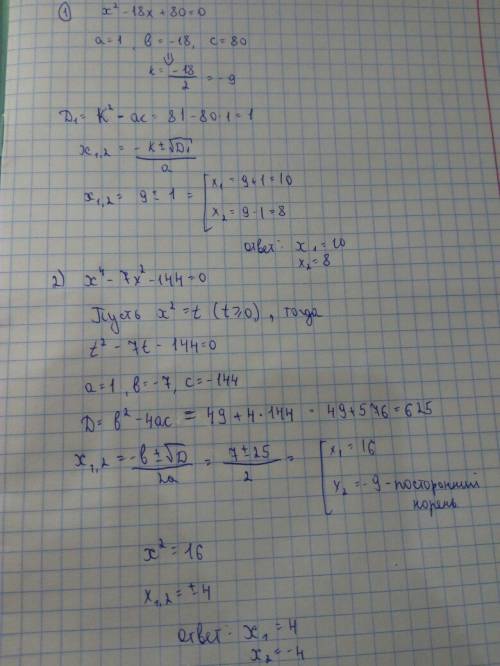 1) x² - 18x + 80 = 0
a = 1, в = -18, c = 80
⇓
k = -18/2 = -9
D₁ = K² - ac = 81 - 80·1 = 1
x₁,₂ = (-K ± √D₁)/a
x₁,₂ = 9 ± 1 = [ x₁ = 9+1 = 10
x₂ = 9-1 = 8
ответ: x₁ = 10
x₂ = 8
2) x⁴ - 7x² - 144 = 0
Пусть x² = t (t ≥ 0), тогда
t² - 7t - 144 = 0
a = 1, в = -7, c = -144
D = в² - 4ac = 49 + 4·144 = 49 + 576 = 625
x₁,₂ = (-в ± √D)/2a = (7 ± 25)/2 = [ x₁ = 16
x₂ = -9 - посторонний
корень
x² = 16
x₁,₂ = ±4
ответ: x₁ = 4
x₂ = -4